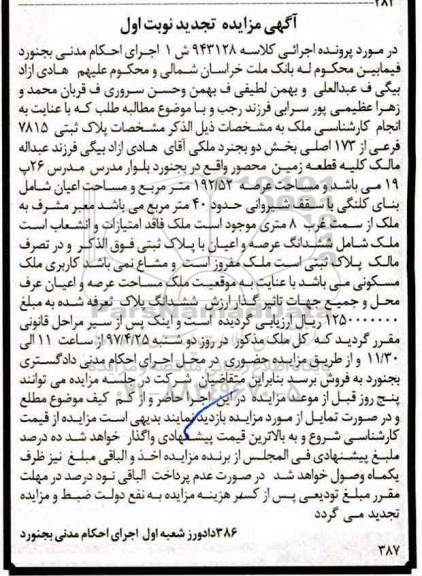 ۲۸۲
آگهی مزایده تجدید نوبت اول
در مورد پرونده اجرائی کلاسه ۹۴۳۱۲۸ ش ۱ اجرای احکام مدنی بجنورد
فیمابین محکوم له بانک ملت خراسان شمالی و محکوم علیهم هادی ازاد
بیگی ف عبدالعلی و بهمن لطیفی ف بهمن وحسن سروری ف قربان محمد و
زهرا عظیمی پور سرابی فرزند رجب و با موضوع مطالبه طلب که با عنایت به
انجام کارشناسی ملک به مشخصات ذیل الذکر مشخصات پلاک ثبتی ۷۸۱۵
فرعی از ۱۷۳ اصلی بخش دو بجنرد ملکی آقای هادی ازاد بیگی فرزند عبداله
مالک کلیه قطعه زمین محصور واقع در بجنورد بلوار مدرس مدرس ۲۶پ
۱۹ می باشد و مساحت عرصه ۱۹۲/۵۲ متر مربع و مساحت اعیان شامل
بنای کلنگی با سقف شیروانی حدود ۴۰ متر مربع می باشد معبر مشرف به
ملک از سمت غرب ۸ متری موجود است ملک فاقد امتیازات و انشعاب است
ملک شامل ششدانگ عرصه و اعیان با پلاک ثبتی فوق الذکر و در تصرف
مالک پلاک ثبتی است ملک مفروز است و مشاع نمی باشد کاربری ملک
مسکونی می باشد با عنایت به موقعیت ملک مساحت عرصه و اعیان عرف
محل و جمیع جهات تاثیر گذار ارزش ششدانگ پلاک تعرفه شده به مبلغ
۱۲۵۰۰۰۰۰۰۰ ریال ارزیابی گردیده است و اینک پس از سیر مراحل قانونی
مقرر گردید که کل ملک مذکور در روز دو شنبه ۹۷/۴/۲۵ از ساعت ۱۱ الی
۱۱/۳۰ و از طریق مزایده حضوری در محل اجرای احکام مدنی دادگستری
بجنورد به فروش برسد بنابراین متقاضیان شرکت در جلسه مزایده می توانند
پنج روز قبل از موعد مزایده در این اجرا حاضر و از کم کیف موضوع مطلع
و در صورت تمایل از مورد مزایده بازدید نمایند بدیهی است مزایده از قیمت
کارشناسی شروع و به بالاترین قیمت پیشنهادی واگذار خواهد شد ده درصد
مبلغ پیشنهادی فی المجلس از برنده مزایده اخذ و الباقی مبلغ نیز ظرف
یکماه وصول خواهد شد در صورت عدم پرداخت الباقی نود درصد در مهلت
مقرر مبلغ تودیعی پس از کسر هزینه مزایده به نفع دولت ضبط و مزایده
تجدید می گردد
۳۸۶دادورز شعبه اول اجرای احکام مدنی بجنورد
۳۸۷